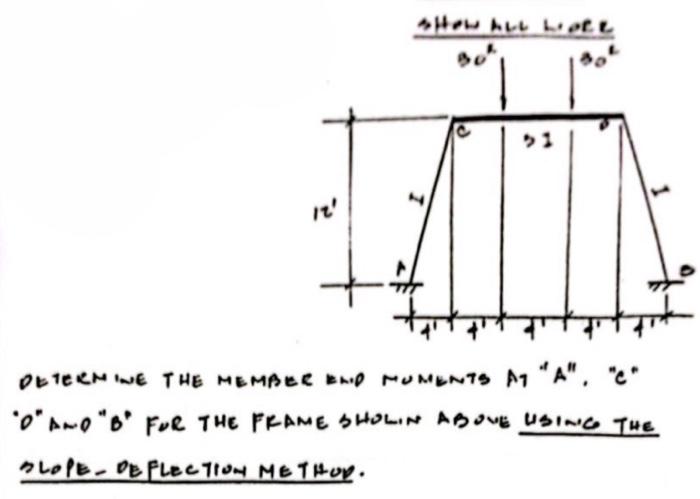 SHOW ALL WORK
30k 30k
C D
3I
I I
12'
A B
4' 4' 4' 4' 4'
DETERMINE THE MEMBER END MOMENTS AT "A", "C"
"D" AND "B" FOR THE FRAME SHOWN ABOVE USING THE
SLOPE-DEFLECTION METHOD.